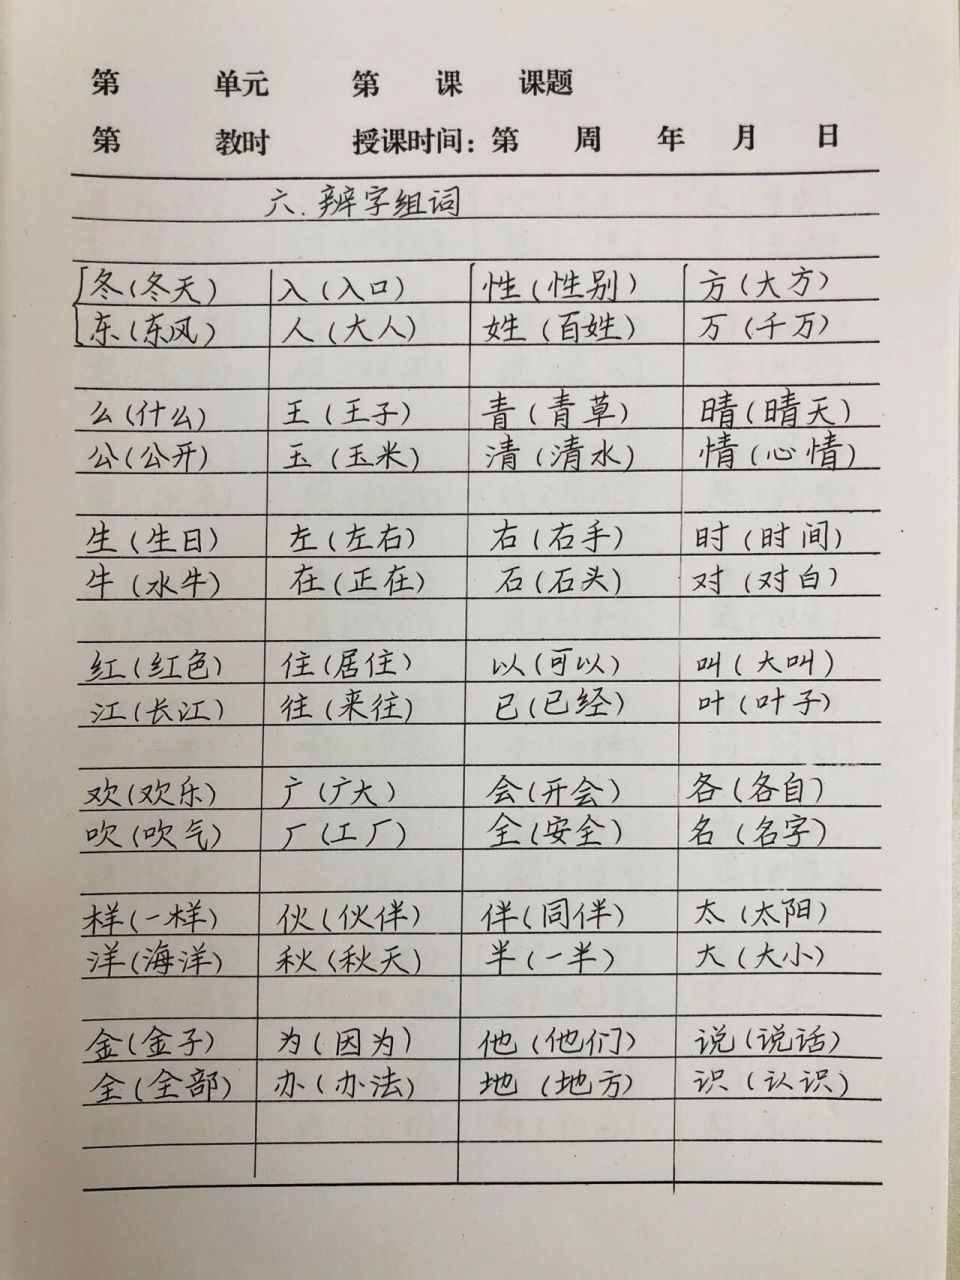 第 单元 第 课 课题
第 教时 授课时间：第 周 年 月 日
六.辨字组词
冬(冬天) 入(入口) 性(性别) 方(大方)
东(东风) 人(大人) 姓(百姓) 万(千万)
么(什么) 王(王子) 青(青草) 晴(晴天)
公(公开) 玉(玉米) 清(清水) 情(心情)
生(生日) 左(左右) 右(右手) 时(时间)
牛(水牛) 在(正在) 石(石头) 对(对白)
红(红色) 住(居住) 以(可以) 叫(大叫)
江(长江) 往(来往) 已(已经) 叶(叶子)
欢(欢乐) 广(广大) 会(开会) 各(各自)
吹(吹气) 厂(工厂) 全(安全) 名(名字)
样(一样) 伙(伙伴) 伴(同伴) 太(太阳)
洋(海洋) 秋(秋天) 半(一半) 大(大小)
金(金子) 为(因为) 他(他们) 说(说话)
全(全部) 办(办法) 地(地方) 识(认识)